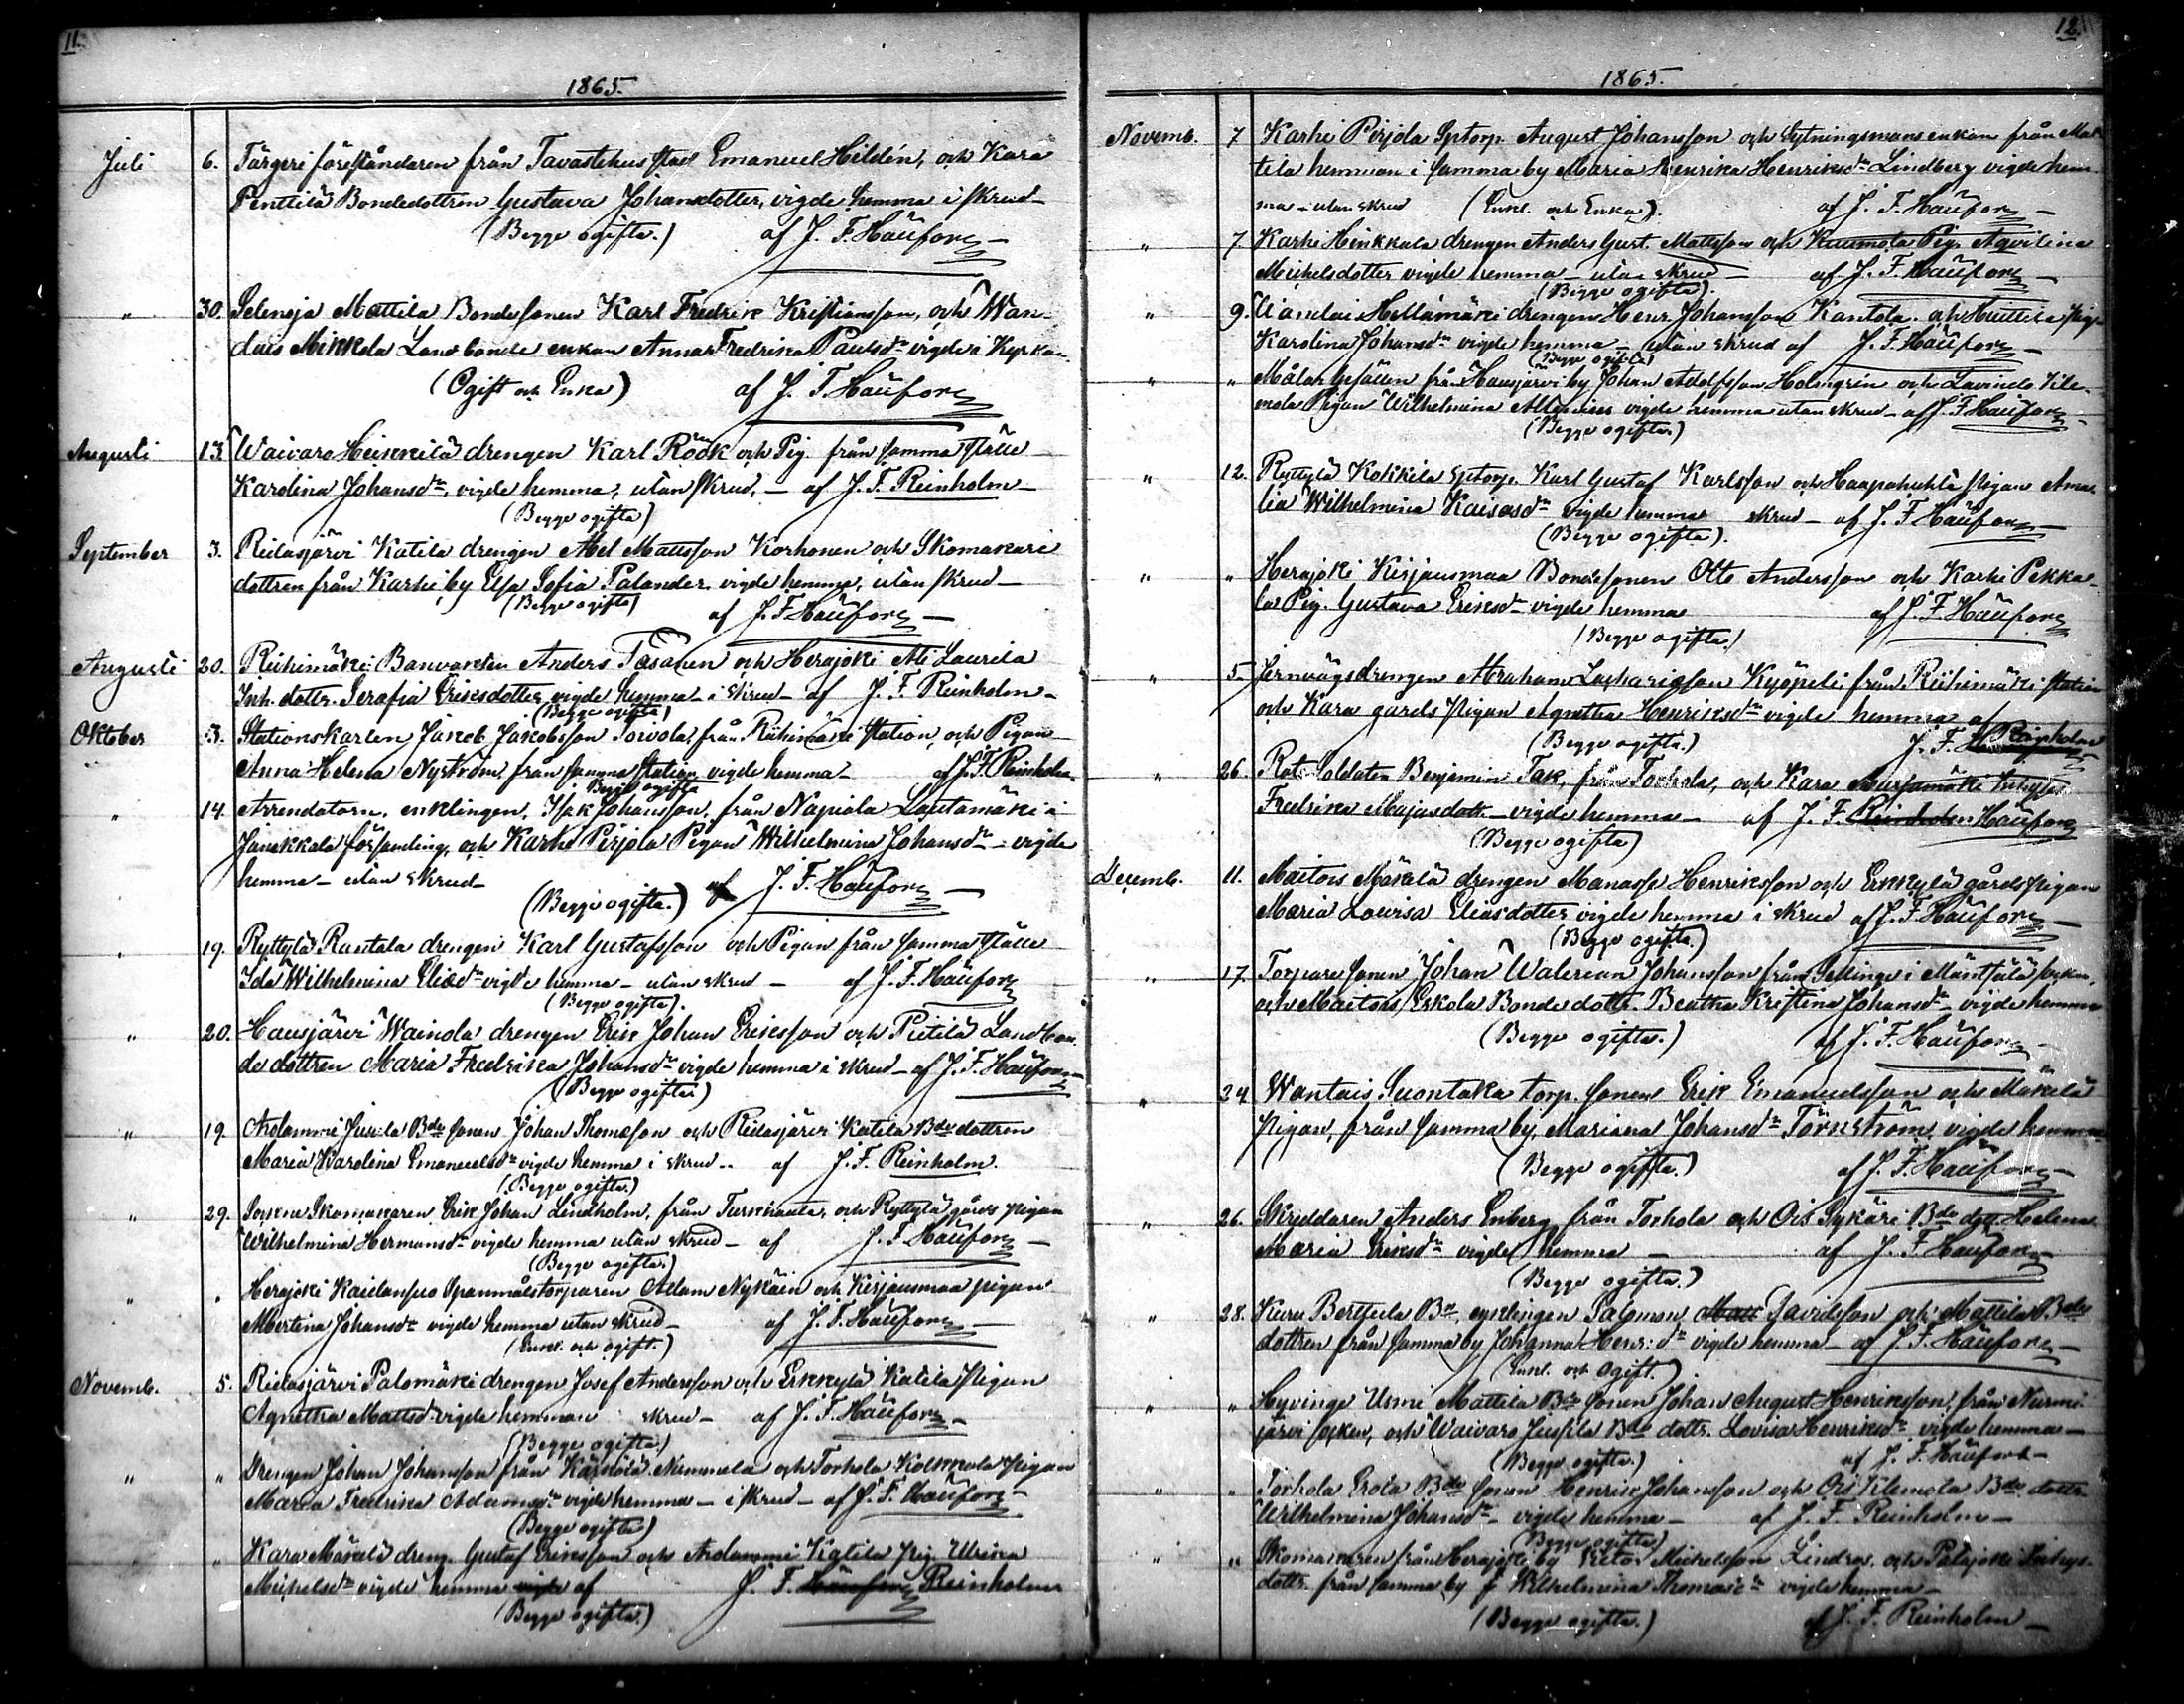 11.
1865.
Juli 6. Färgeri föreståndaren från Tavastehus stad Emanuel Hildén, och Kara
Penttilä Bondedottren Gustava Johansdotter, vigde hemma i skrud
(Begge ogifta.) af J. F. Häüfors
" 30. Selenoja Mattila Bondesonen Karl Fredrik Kristiansson, och Wan-
dais Mikkola Landbonde enkan Anna Fredrika Paulsdr vigde i Kyrkan
(Ogift och Enka) af J. F. Häüfors
Augusti 13. Waivaro Heikkilä drengen Karl Röök och Pig. från samma ställe
Karolina Johansdr, vigde hemma, utan skrud, af J. F. Reinholm
(Begge ogifta)
September 3. Ridasjärvi Katila drengen Abel Mattsson Korhonen och Skomakare
dottren från Karhi by Elsa Sofia Palander vigde hemma, utan skrud
(Begge ogifta) af J. F. Häüfors
Augusti 20. Riihimäki Banvakten Anders Tasanen och Herajoki Ali Laurila
Inh. dottr. Serafia Eriksdotter vigde hemma i skrud af J. F. Reinholm
(Begge ogifta)
Oktober 3. Stationskarlen Jakob Jakobsson Toivola, från Riihimäki Station, och Pigan
Anna Helena Nyström, från samma station vigde hemma af J. F. Reinholm
Begge ogifta
" 14. Arrendatorn, enklingen, Isak Johansson, från Napiala Lautamäki i
Janakkala församling, och Karhi Pirjola Pigan Wilhelmina Johansdr vigde
hemma utan skrud
(Begge ogifta.) af J. F. Häüfors
" 19. Ryttylä Rantala drengen Karl Gustafsson och Pigan från samma ställe
Ida Wilhelmina Eliædr vigde hemma utan skrud af J. F. Häüfors
(Begge ogifta).
" 20. Hausjärvi Wainola drengen Erik Johan Eriksson och Pietilä Landbon-
de dottren Maria Fredrika Johansdr vigde hemma i skrud af J. F. Häüfors
(Begge ogifta)
" 19. Arolammi Jussila Bde sonen Johan Thomasson och Ridasjärvi Katila Bde dottren
Maria Karolina Emanuelsdr vigde hemma i skrud af J. F. Reinholm.
(Begge ogifta.)
" 29. Sockne Skomakaren Erik Johan Lindholm, från Turkhauta, och Ryttylä gårds pigan
Wilhelmina Hermansdr vigde hemma utan skrud af J. F. Häüfors
(Begge ogifta.)
" Herajoki Kaidansuo Spanmålstorparen Adam Nykäin och Kirjausmaa pigan
Albertina Johansdr vigde hemma utan skrud af J. F. Häüfors
(Enkl. och ogift.)
Novemb. 5. Ridasjärvi Palomäki drengen Josef Andersson och Erkkylä Katila pigan
Agnetha Mattsdr vigde hemma skrud af J. F. Häüfors
(Begge ogifta)
" " Drengen Johan Johansson från Kärkölä Nummela och Torhola Kolmola pigan
Maria Fredrika Adamsdr vigde hemma i skrud af J. F. Häüfors
(Begge ogifta)
" Kara Mäkelä dreng. Gustaf Eriksson och Arolammi Katila pig. Ulrika
Michelsdr vigde hemma vigde af J. F. Häüfors Reinholm
(Begge ogifta.)
12.
1865.
Novemb. 7 Karhi Pirjola Sptorp. August Johansson och Sytningsmans enkan från Mat-
tila hemman i samma by Maria Henrika Henriksdr Lindberg vigde hem-
ma utan skrud (Enkl. och Enka). af J. F. Häüfors
" 7. Karhi Heikkala drengen Anders Gust. Mattsson och Kuumola Pig. Aqvilina
Michelsdotter vigde hemma utan skrud af J. F. Häüfors
(Begge ogifta).
" 9. Wandais Hellämäki drengen Henr. Johansson Kantola och Huttila pig.
Karolina Johansdr vigde hemma utan skrud af J. F. Häüfors
(Begge ogifta)
" " Målar Gesällen från Hausjärvi by Johan Adolfsson Holmgrén och Lavinto
Pigan Wilhelmina vigde hemma utan skrud af J. F. Häüfors
(Begge ogifta)
" 12. Ryttylä Kokkila Sptorp. Karl Gustaf Karlsson och Haapahuhta pigan Ama-
lia Wilhelmina Kaisasdr vigde hemma skrud af J. F. Häüfors
(Begge ogifta).
" " Herajoki Kirjausmaa Bondesonen Otto Andersson och Karhi Pekka-
la Pig. Gustava Eriksdr vigde hemma af J. F. Häüfors
(Begge ogifta)
" 5. Jernvägsdrengen Abraham Zachariasson Kyöpeli från Riihimäki station
och Kara gårds pigan Agnetha Henriksdr vigde hemma af
(Begge ogifta.) J. F. Reinholm
" 26. Rote Soldaten Benjamin Tak, från Torhola, och Kara Inhyses
Fredrika Majasdott. vigde hemma af J. F. Reinholm Häüfors
(Begge ogifta)
Decemb. 11. Maitois Mäkelä drengen Manasse Henriksson och Erkkylä gårdspigan
Maria Lovisa Eliasdotter vigde hemma i skrud af J. F. Häüfors
(Begge ogifta.)
" 17. Torparesonen Johan Walerian Johansson från Sellinge i Mäntsälä socken,
och Maitois Eskola Bonde dottr. Beatha Kristina Johansdr vigde hemma
(Begge ogifta.) af J. F. Häüfors
" 24. Wantais Suontaka torp. sonen Erik Emanuelsson och Mäkelä
pigan, från samma by, Mariana Johansdr Törnström vigde hemma
(Begge ogifta.) af J. F. Häüfors
" 26. Skreddaren Anders Enberg från Torhola och Ois Sykäri Bde dott. Helena
Maria Eriksdr vigde hemma af J. F. Häüfors
(Begge ogifta.)
" 28. Kuru Berttula Bn, enklingen Salomon Matt Davidsson och Mattila Bde
dottren från samma by Johanna Henr:dr vigde hemma af J. F. Häüfors
(Enkl. och Ogift.)
" " Hyvinge Usmi Mattila Bde sonen Johan August Henriksson, från Nurmi-
järvi socken, och Waivaro Jussila Bde dottr. Lovisa Henriksdr vigde hemma
(Begge ogifta.) af J. F. Häüfors
" " Torhola Erola Bde sonen Henrik Johansson och Ois Klemola Bde dottr.
Wilhelmina Johansdr vigde hemma af J. F. Reinholm
(Begge ogifta)
" " Skomakaren från Herajoki by Victor Michelsson Lindros, och Patajoki Inhys.
dottr. från samma by Wilhelmina Thomasdr vigde hemma
(Begge ogifta.) af J. F. Reinholm